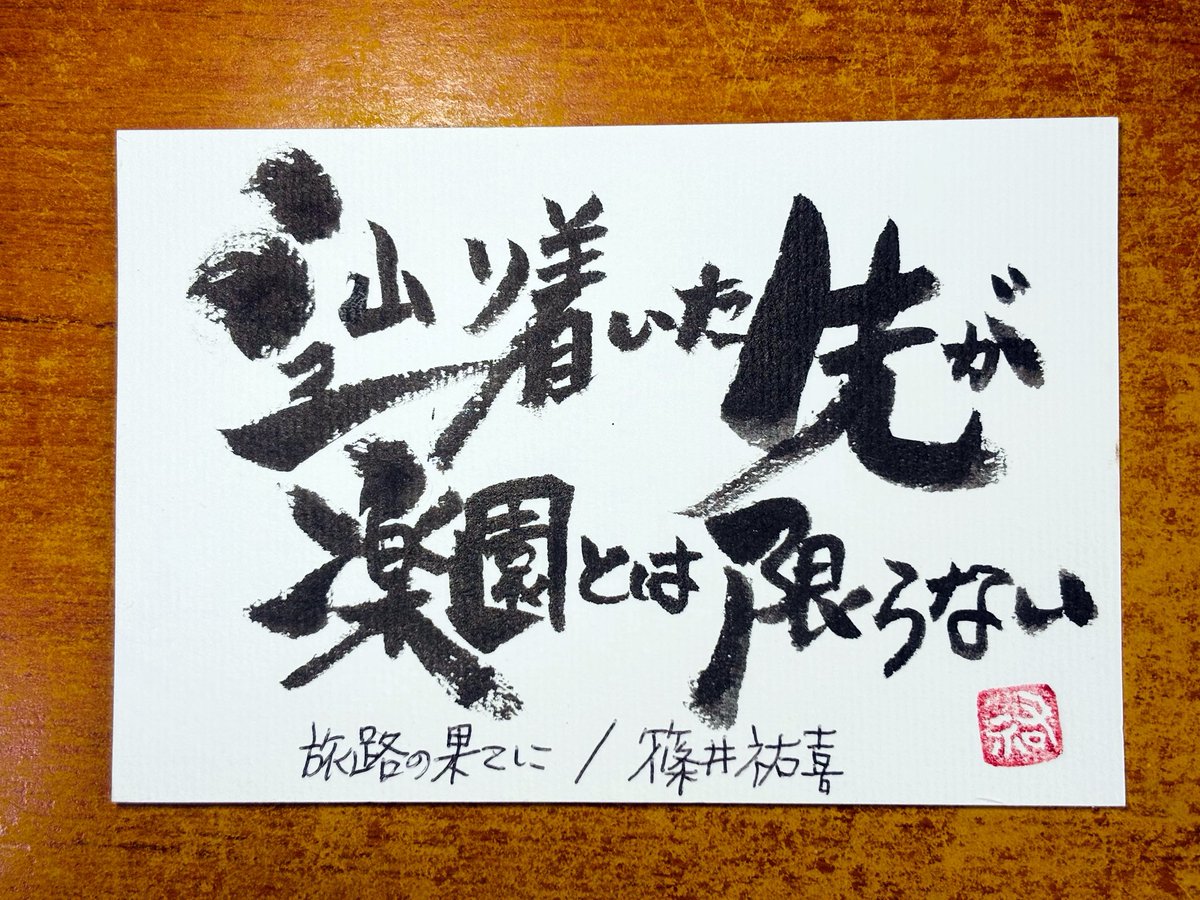 辿り着いた先が
楽園とは限らない
旅路の果てに / 篠井祐喜